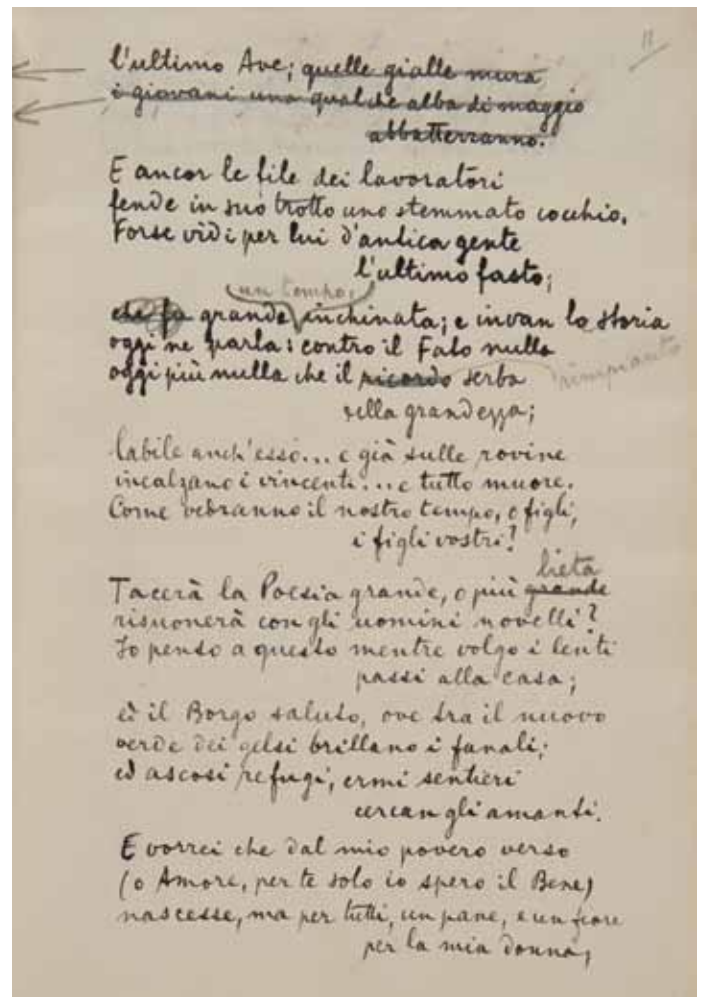 11
l'ultimo Ave; quelle gialle mura
i giovani una qualche alba di maggio
abbatterranno.
E ancor le file dei lavoratori
fende in suo trotto uno stemmato cocchio.
Forse vidi per lui d'antica gente
l'ultimo fasto;
un tempo,
che fu grande inchinata; e invan la storia
oggi ne parla: contro il Fato nulla
oggi più nulla che il ricordo serba
rimpianto
della grandezza;
labile anch'esso... e già sulle rovine
incalzano i vincenti... e tutto muore.
Come vedranno il nostro tempo, o figli,
i figli vostri?
lieta
Tacerà la Poesia grande, o più grande
risuonerà con gli uomini novelli?
Io penso a questo mentre volgo i lenti
passi alla casa;
ed il Borgo saluto, ove tra il nuovo
verde dei gelsi brillano i fanali;
ed ascosi refugi, ermi sentieri
cercan gli amanti.
E vorrei che dal mio povero verso
(o Amore, per te solo io spero il Bene)
nascesse, ma per tutti, un pane, e un fiore
per la mia donna,